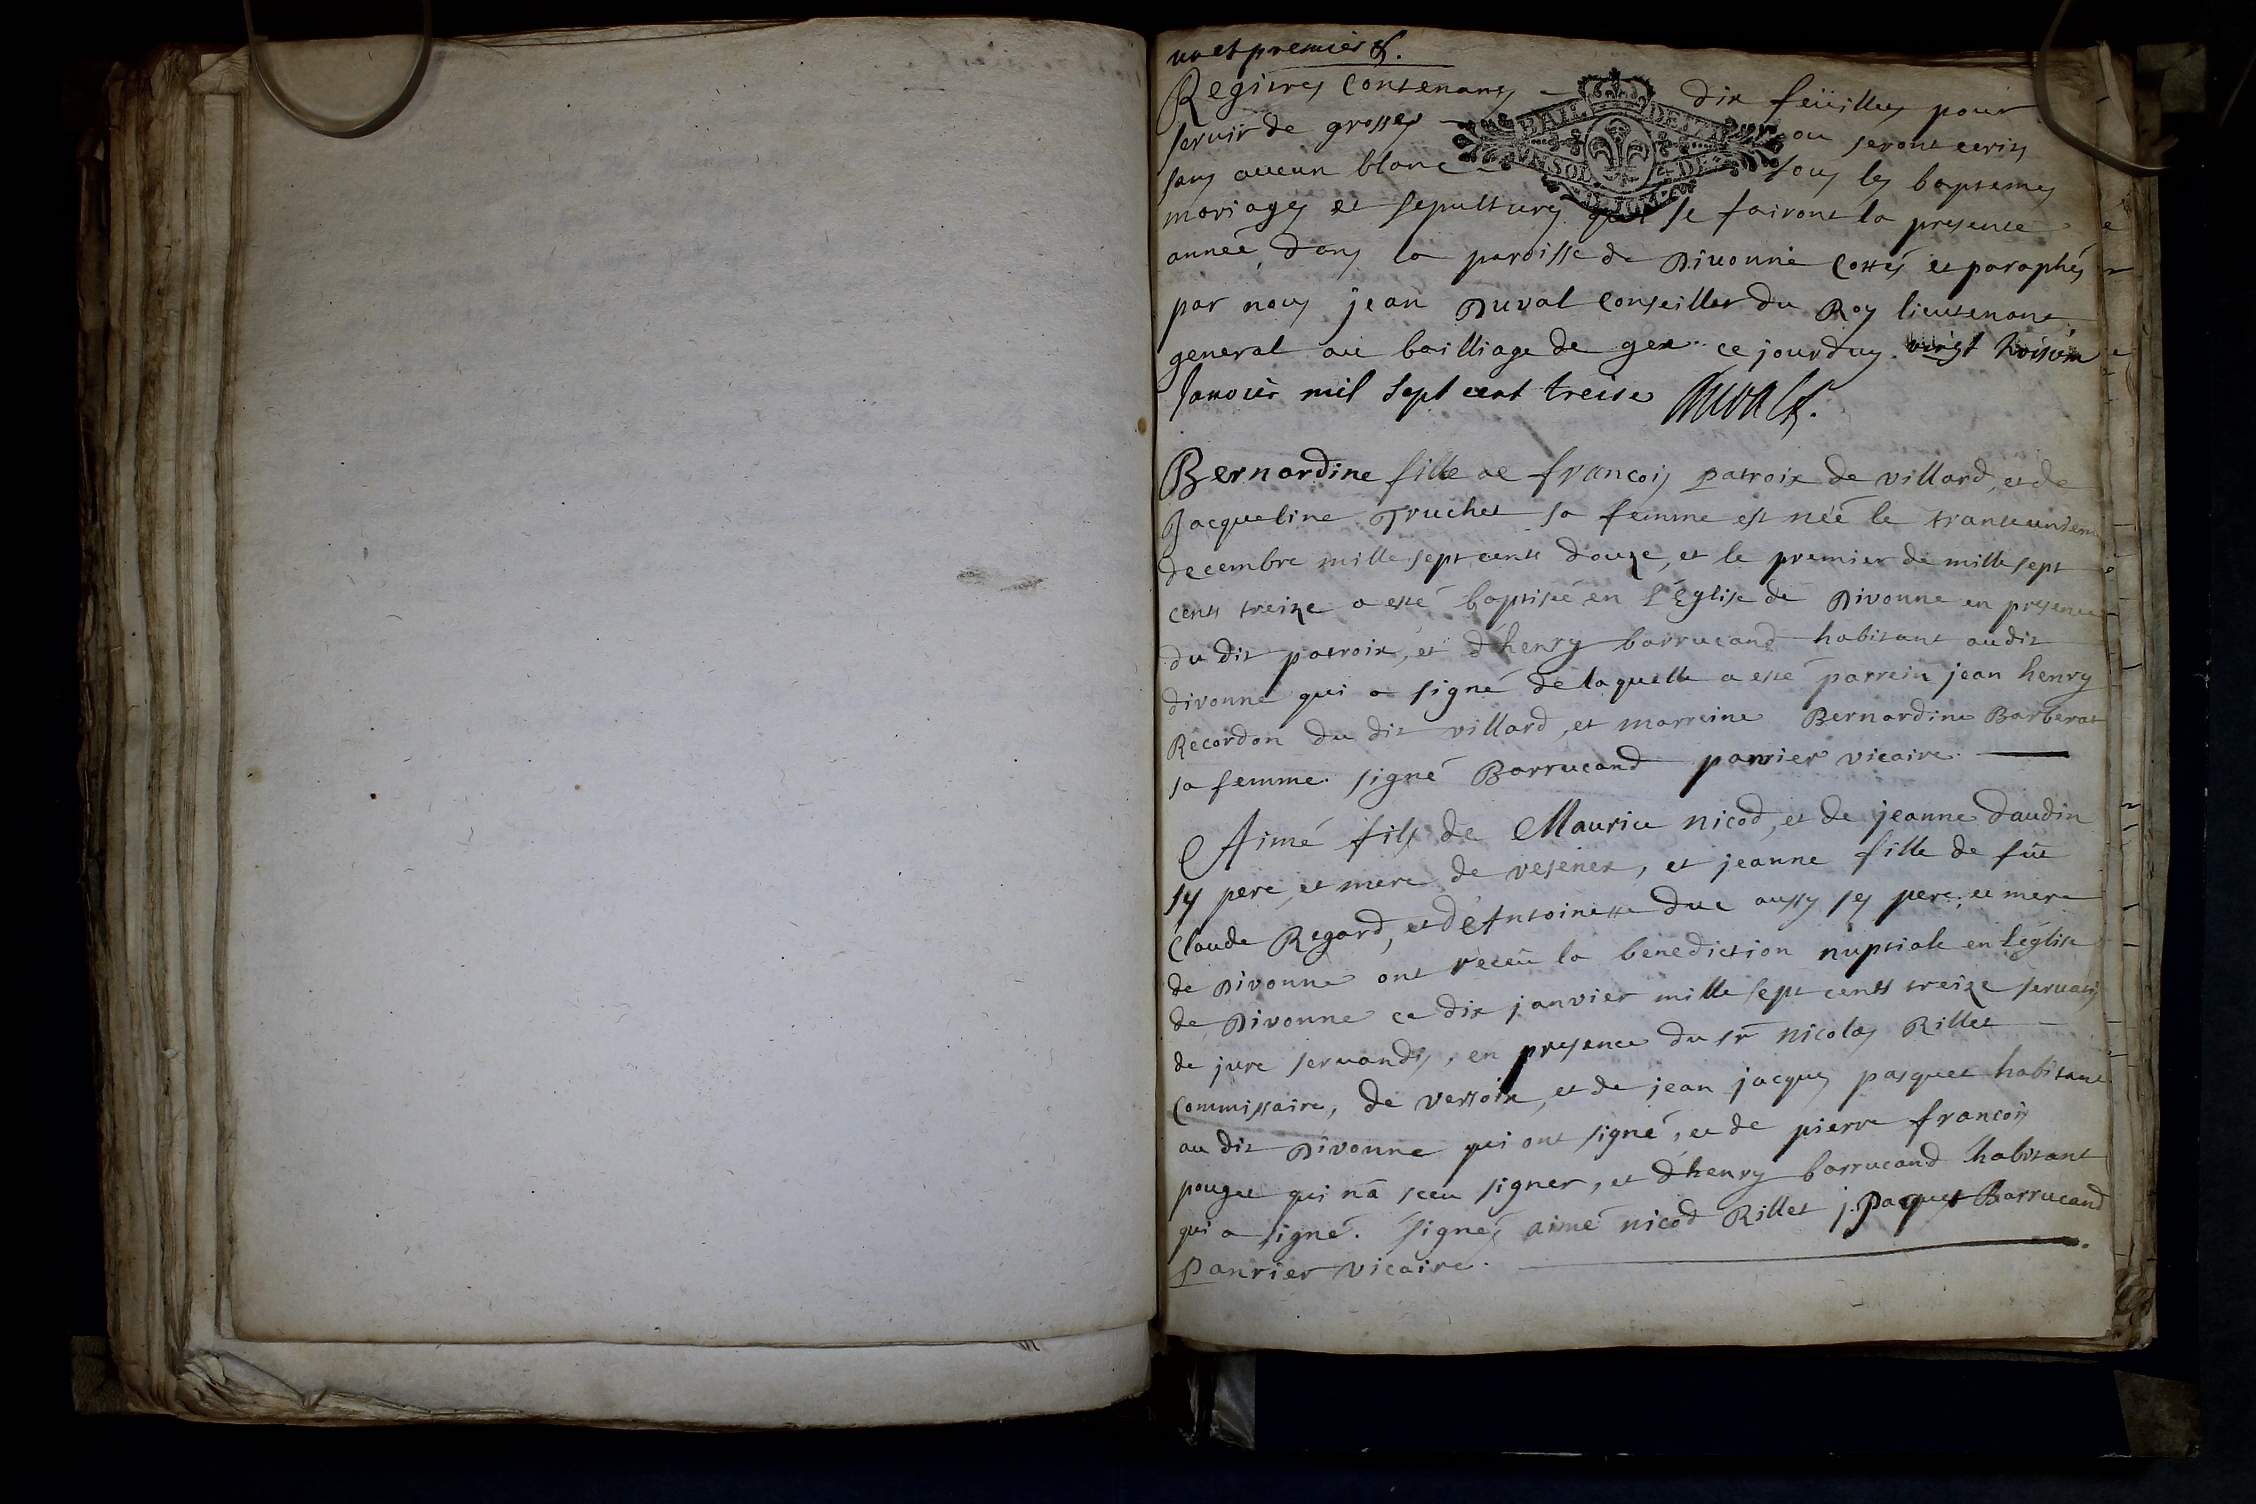 un et premier
Registres Contenants dix feüilles pour
servir de grosses ou seront ecrits
sans aucun blanc tous les baptesmes
BAIL DE
UN SOL 4 DE
DIJON
mariages et sepultures qui se fairont la presente
année dans la paroisse de Divonne Cottés et paraphés
par nous jean Duval Conseiller du Roy lieutenant
general au bailliage de gex ce jourduy vingt
Janvier mil sept cent treise Duval
Bernardine fille de françois patroix de villard, et de
Jacqueline Truchet sa femme est née le
decembre mille sept cents douze, et le premier de mille sept
cents treize a esté baptisée en L'Eglise de Divonne en presence
du dit patroix, et d'henry barrucand habitant audit
divonne qui a signé de laquelle a esté parrein jean henry
Recordon du dit villard, et marreine Bernardine Barberat
sa femme. signé Barrucand panrier vicaire.
Aimé fils de Maurice nicod, et de jeanne daudin
ses pere, et mere de vesenex, et jeanne fille de fût
Claude Regard, et d'Antoinette duc aussy ses pere, et mere
de Divonne ont receü la benediction nuptiale en L'église
de Divonne ce dix janvier mille sept cents treize servatis
de jure servandis, en presence du sr nicolas Rillet
Commissaire, de versoix, et de jean jacques pasquet habitant
au dit Divonne qui ont signé, et de pierre françois
pouget qui n'a sceu signer, et d'henry barrucand habitant
qui a signé. signés aimé nicod Rillet j. Paquet Barrucand
Panrier vicaire.